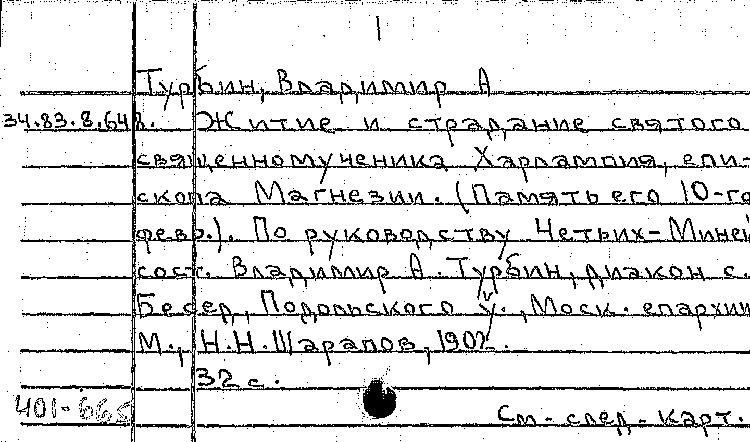 Турбин, Владимир А
34.83.8.648. Житие и страдание святого
священномученика Харлампия, епи-
скопа Магнезии. (Память его 10-го
февр.). По руководству Четьих-Миней
сост. Владимир А. Турбин, диакон с.
Бесед, Подольского у., Моск. епархии
М., Н.Н. Шарапов, 1902.
32 с.
401-665
См- след- карт.